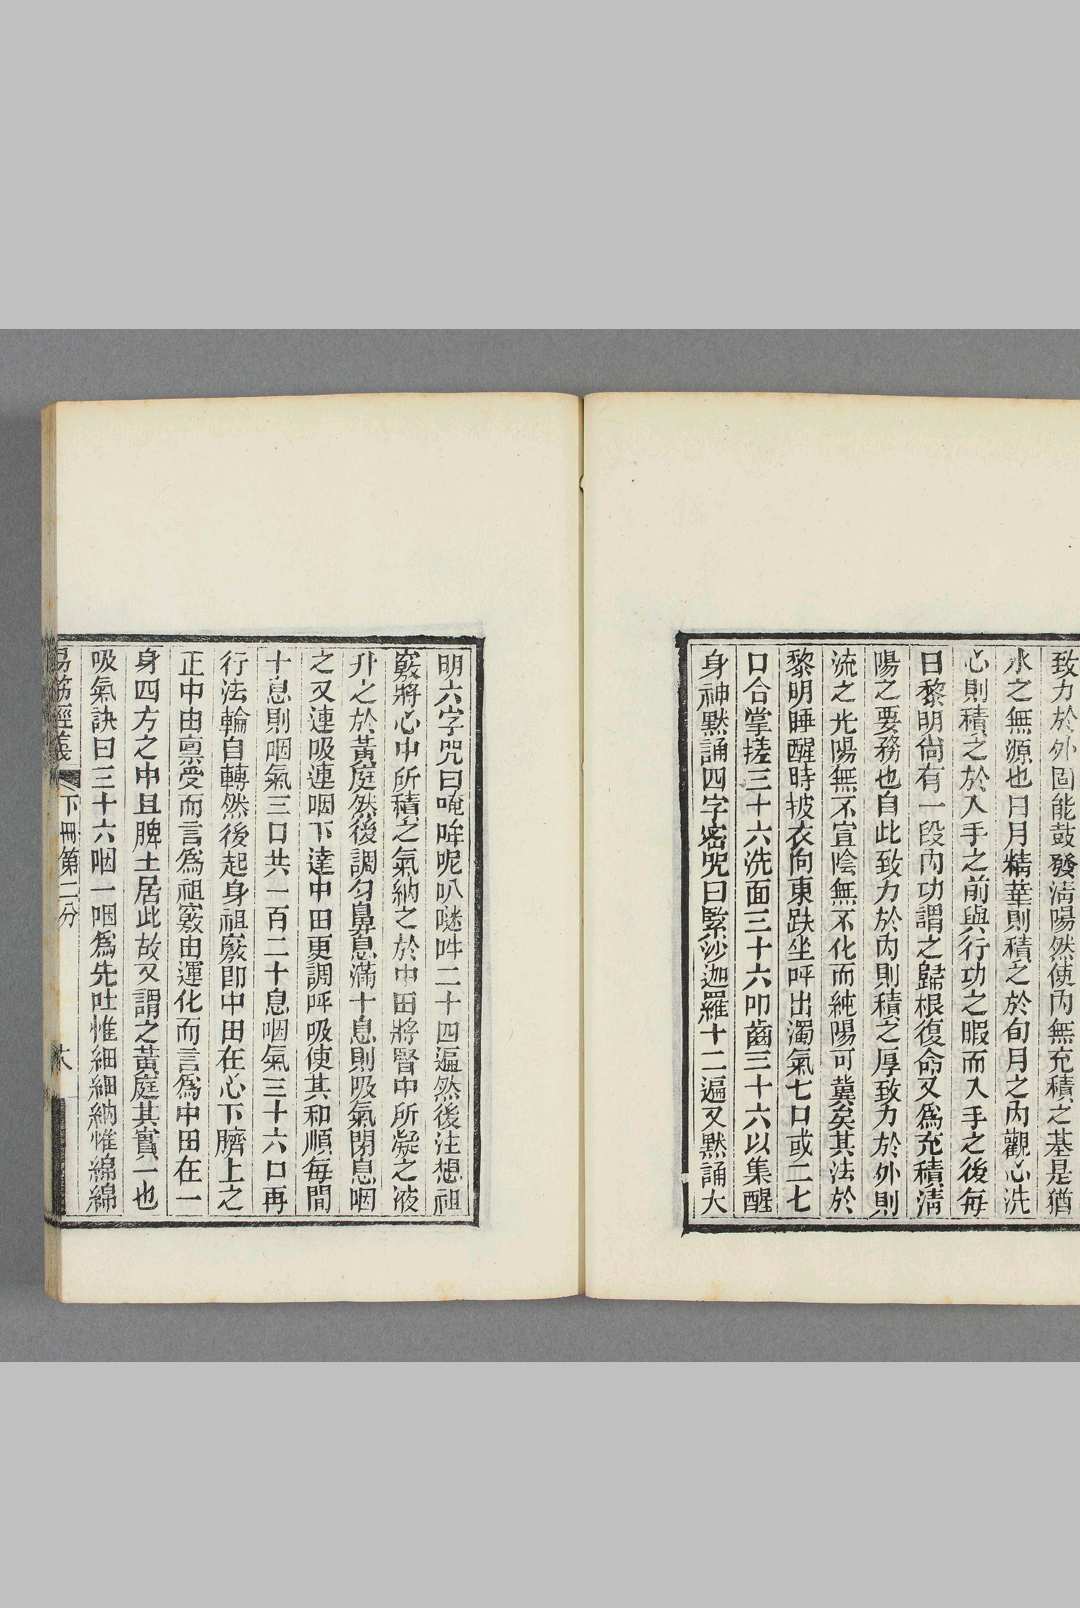 致力於外固能鼓發清陽然使內無充積之基是猶
水之無源也日月精華則積之於旬月之內觀心洗
心則積之於入手之前與行功之暇而入手之後每
日黎明尚有一段內功謂之歸根復命又為充積清
陽之要務也自此致力於內則積之厚致力於外則
流之光陽無不宣陰無不化而純陽可冀矣其法於
黎明睡醒時披衣向東趺坐呼出濁氣七口或二七
口合掌搓三十六洗面三十六叩齒三十六以集醒
身神默誦四字密咒曰緊沙迦羅十二遍又默誦大
明六字咒曰唵哞呢叭㘄吽二十四遍然後注想祖
竅將心中所積之氣納之於中田將腎中所凝之液
升之於黃庭然後調勻鼻息滿十息則吸氣閉息咽
之又連吸連咽下達中田更調呼吸使其和順每間
十息則咽氣三口共一百二十息咽氣三十六口再
行法輪自轉然後起身祖竅即中田在心下臍上之
正中由稟受而言為祖竅由運化而言為中田在一
身四方之中且脾土居此故又謂之黃庭其實一也
吸氣訣曰三十六咽一咽為先吐惟細細納惟綿綿
易筋經義 下冊第二分